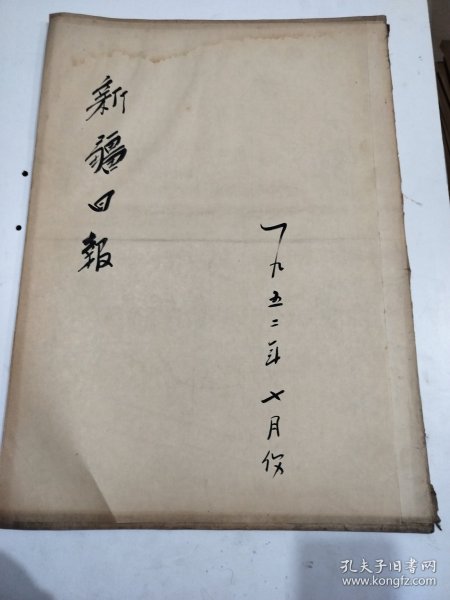 新疆日報
一九五二年七月份
孔夫子旧书网
www.kongfz.com